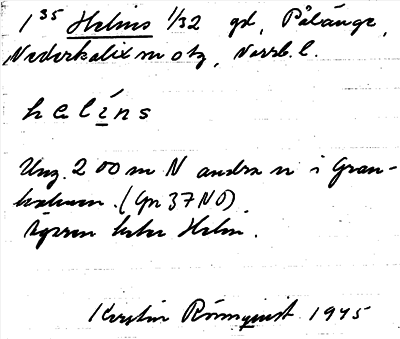 1³⁵ Helins 1/32 gd, Pålänge,
Nederkalix sn o tg, Norrb. l.
helins
Ung. 200 m N andra n i Gran-
holmen. (Gn 37 NO)
Ägaren heter Helin.
Kerstin Rönnquist 1945